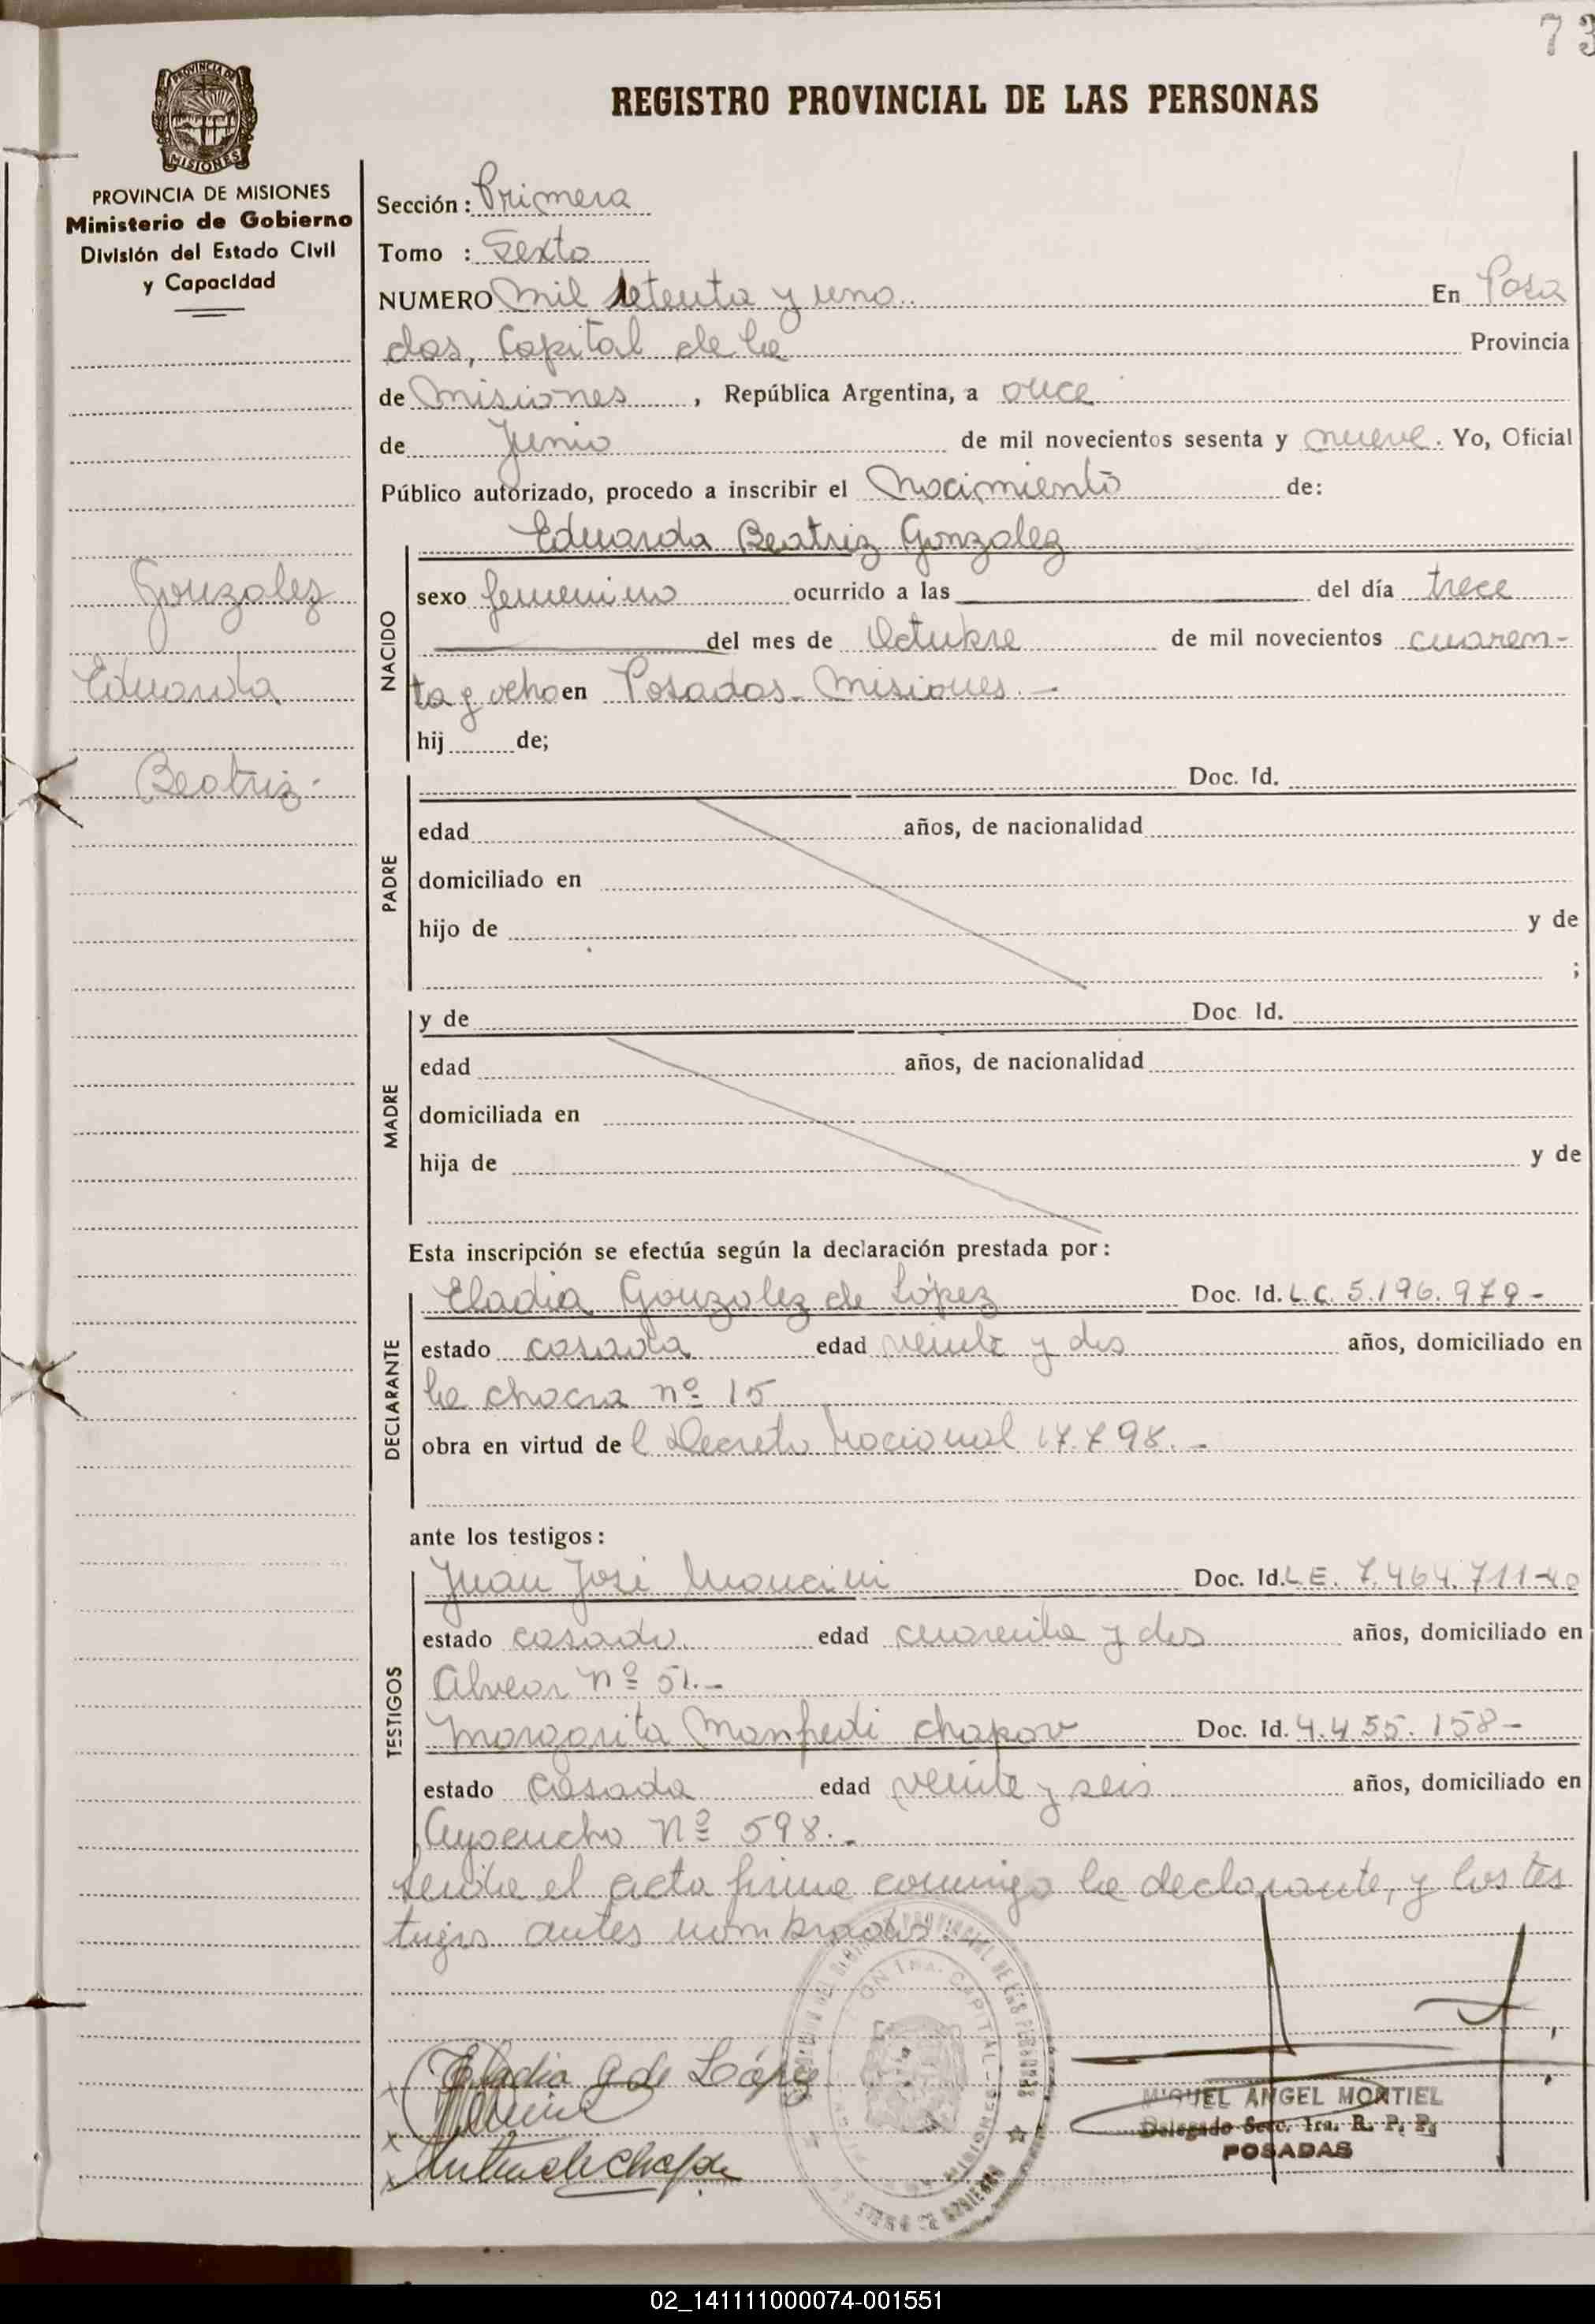 73
REGISTRO PROVINCIAL DE LAS PERSONAS
PROVINCIA DE
MISIONES
PROVINCIA DE MISIONES
Ministerio de Gobierno
División del Estado Civil
y Capacidad
Gonzalez
Eduarda
Beatriz.-
Sección: Primera
Tomo : Sexto
NUMERO mil setenta y uno En Posa
das, Capital de la Provincia
de Misiones, República Argentina, a once
de Junio de mil novecientos sesenta y nueve. Yo, Oficial
Público autorizado, procedo a inscribir el Nacimiento de:
NACIDO
Eduarda Beatriz Gonzalez
sexo femenino ocurrido a las del día trece
del mes de Octubre de mil novecientos cuaren-
ta y ocho en Posadas - Misiones.-
hij de;
PADRE
Doc. Id.
edad años, de nacionalidad
domiciliado en
hijo de y de
;
MADRE
y de Doc. Id.
edad años, de nacionalidad
domiciliada en
hija de y de
Esta inscripción se efectúa según la declaración prestada por:
DECLARANTE
Eladia Gonzalez de López Doc. Id. L.C. 5.196.979-
estado casada edad veinte y dos años, domiciliado en
la chacra nº 15
obra en virtud de l Decreto Nacional 17.798.-
ante los testigos:
TESTIGOS
Juan José Mancini Doc. Id. L.E. 7.464.711-40
estado casado edad cuarenta y dos años, domiciliado en
Alvear nº 51.-
Margarita Manfredi Chapov Doc. Id. 4.455.158-
estado casada edad veinte y seis años, domiciliado en
Ayacucho nº 598.-
Leída el acta firma conmigo la declarante, y los tes
tigos antes nombrados.
Eladia G de López
MIGUEL ANGEL MONTIEL
Delegado Secc. 1ra. R. P. P.
POSADAS
02_141111000074-001551